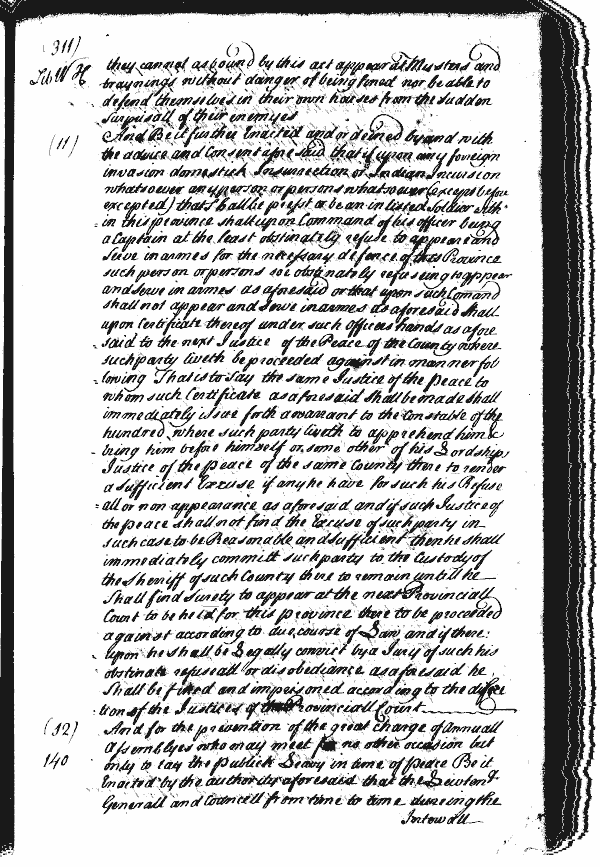 (311)
Lib W H
they cannot as bound by this act appear at Musters and
traynings without danger of being fined nor be able to
defend themselves in their own houses from the sudden
surpisall of their enemyes
(11)
And Be it further Enacted and ordeined by and with
the advice and Consent aforesaid that if upon any foreign
invasion domestick Insurrection or Indian Incursion
whatsoever any person or persons whatsoever (except before
excepted) that shall be prest or be an inlisted Soldier with=
in this province shall upon Command of his officer being
a Captain at the least obstinately refuse to appear and
serve in armes for the necessary defence of this Province
such person or persons soe obstinately refuseing to appear
and serve in armes as aforesaid or that upon such Comand
shall not appear and serve in armes as aforesaid shall
upon Certificate thereof under such officers hands as afore
said to the next Justice of the Peace of the County where
such party liveth be proceeded against in manner fol
=lowing That is to say the same Justice of the Peace to
whom such Certificate as aforesaid shall be made shall
immediately issue forth a warrant to the Constable of the
hundred where such party liveth to apprehend him &
bring him before himself or some other of his Lordships
Justice of the peace of the same County there to render
a sufficient Excuse if any he have for such his Refuse
=all or non appearance as aforesaid and if such Justice of
the peace shall not find the Excuse of such party in
such case to be Reasonable and sufficient then he shall
immediately committ such party to the Custody of
the Sherriff of such County there to remain untill he
shall find surety to appear at the next Provinciall
Court to be held for this province there to be proceeded
against according to due course of Law and if there:
upon he shall be Legally convict by a Jury of such his
obstinate refuseall or disobediance as aforesaid he
shall be fined and imprisoned according to the discre
tion of the Justices of the Provinciall Court
(12)
And for the prevention of the great Charge of Annuall
140
Assemblyes who may meet for no other occasion but
only to lay the publick Leavy in time of peace Be it
Enacted by the authority aforesaid that the Lieutent
Generall and Councell from time to time dureing the
Intervall